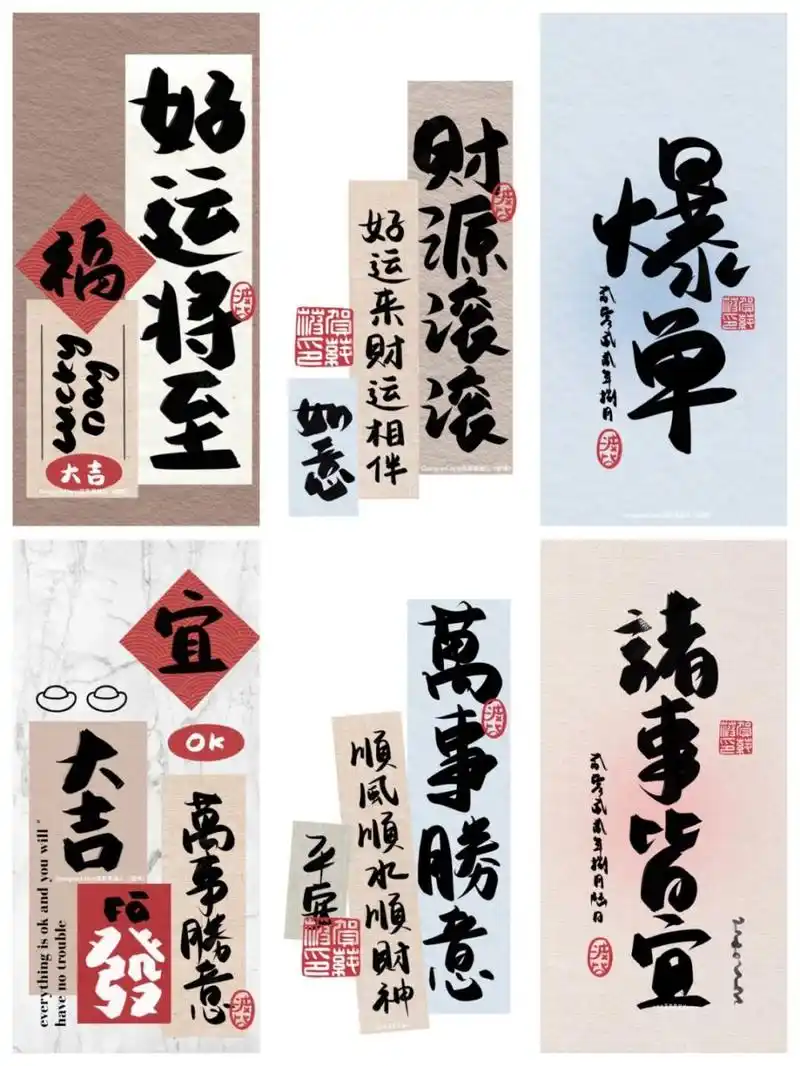 好运将至
福
lucky
Day
大吉
財源滚滚
好运来财运相伴
如意
爆单
贰零贰贰年捌月
宜
OK
大吉
萬事勝意
Fā
發
everything is ok and you will
have no trouble
萬事勝意
順風順水順財神
平安
諸事皆宜
贰零贰贰年捌月陆日